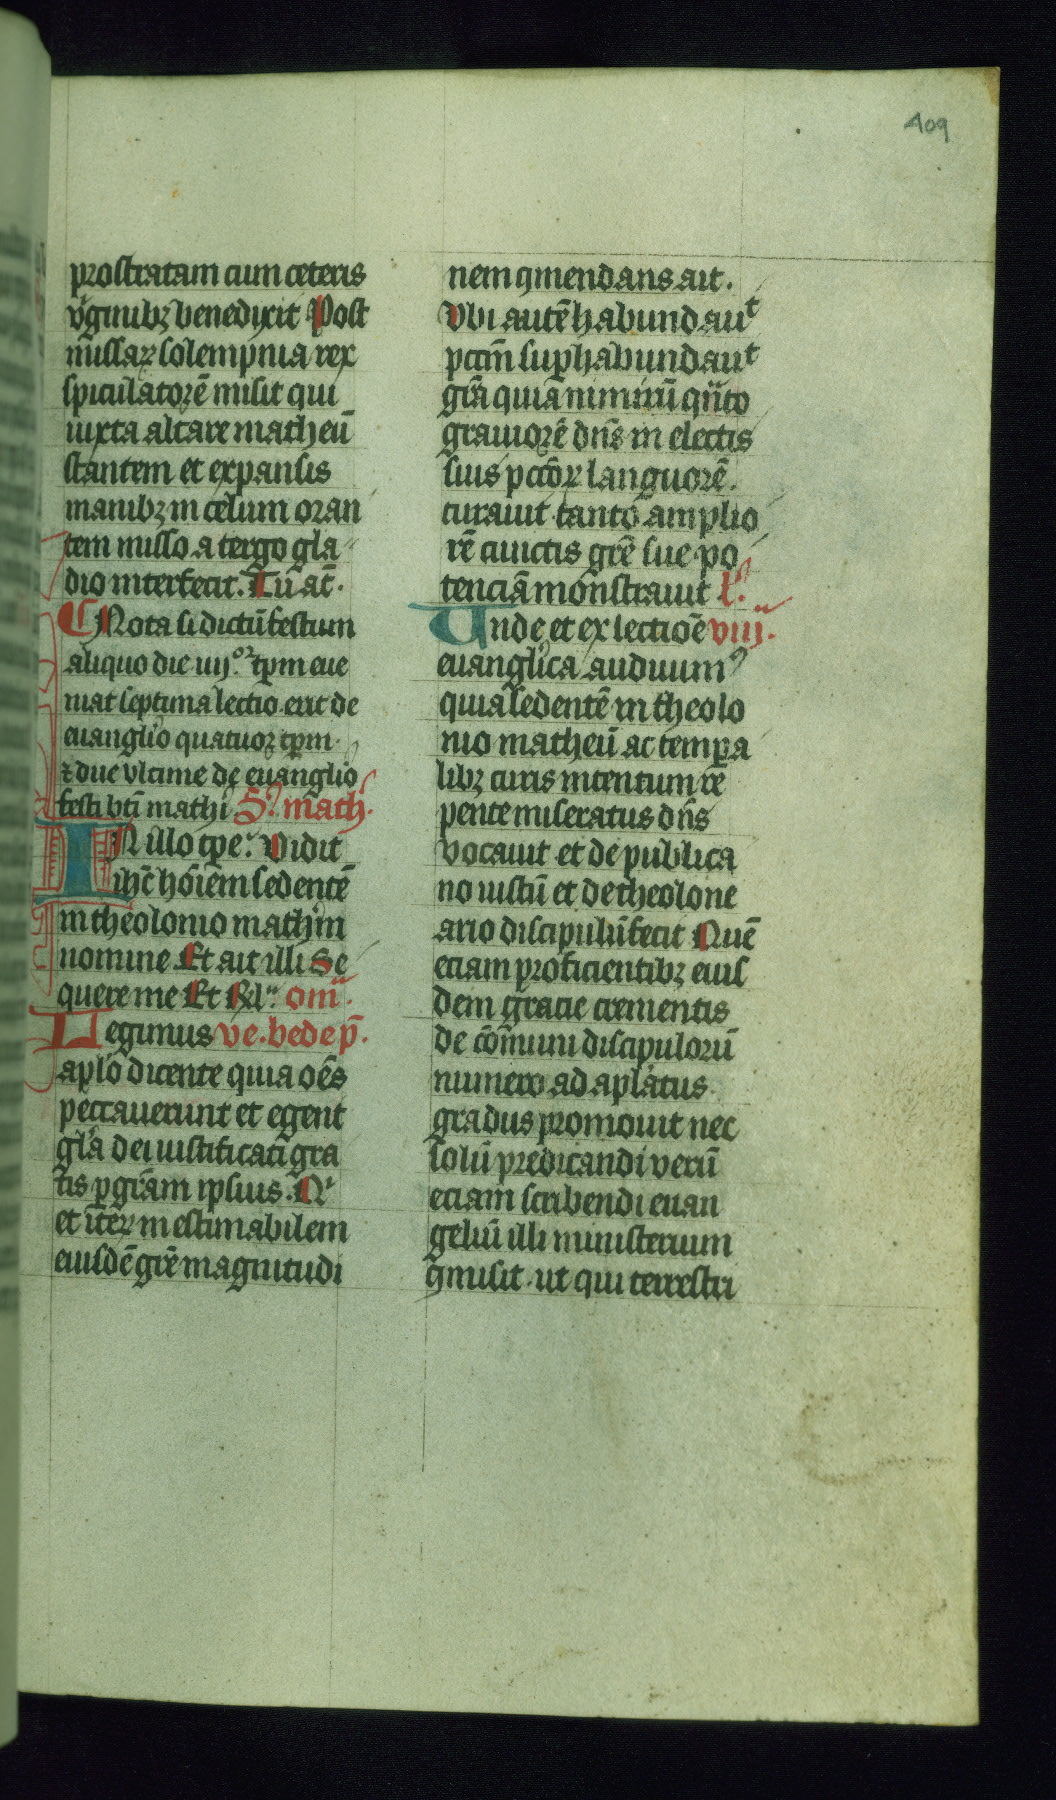 409
prostratam cum ceteris
v͛ginibꝫ benedixit Post
missaꝝ solempnia rex
spiculatorē misit qui
iuxta altare matheū
stantem et expansis
manibꝫ in celum oran
tem misso a tergo gla
dio interfecit. Tu at̄.
Nota si dictū festum
aliquo die iiijoꝛ tꝑm eue
niat septima lectio erit de
euanglio quatuor tꝑm
⁊ due vltime de euanglio
festi bti mathi S. math.
IN illo tꝑe. Vidit
ihc̄ hōiem sedentē
in theolonio mathm
nomine Et ait illi Se
quere me Et Rel. om̄.
Legimus ve. bede p̄.
aplo dicente quia oēs
peccauerunt et egent
gla dei iustificati gra
tis ꝑ grām ipsius. N
et iteꝝ inestimabilem
eiusdē grē magnitudi
nem ꝯmendans ait.
Vbi autē habundauit
pctm̄ suꝑhabundauit
grā quia nimirū qn̄to
grauiorē dn̄s in electis
suis pctōꝝ languorē.
curauit tanto amplio
rē cunctis grē sue po
tenciā monstrauit l.
Unde et ex lectiōe viij.
euanglica audiuimꝰ
quia sedentē in theolo
nio matheū ac tempa
libꝫ curis intentum re
pente miseratus dn̄s
vocauit et de publica
no iustū et de theolone
ario discipulū fecit Quē
eciam proficientibꝫ eius
dem gracie crementis
de cōmuni discipulorū
numero ad aplatus
gradus promouit nec
solū predicandi verū
eciam scribendi euan
geliū illi ministerium
ꝯmisit. ut qui terrestri